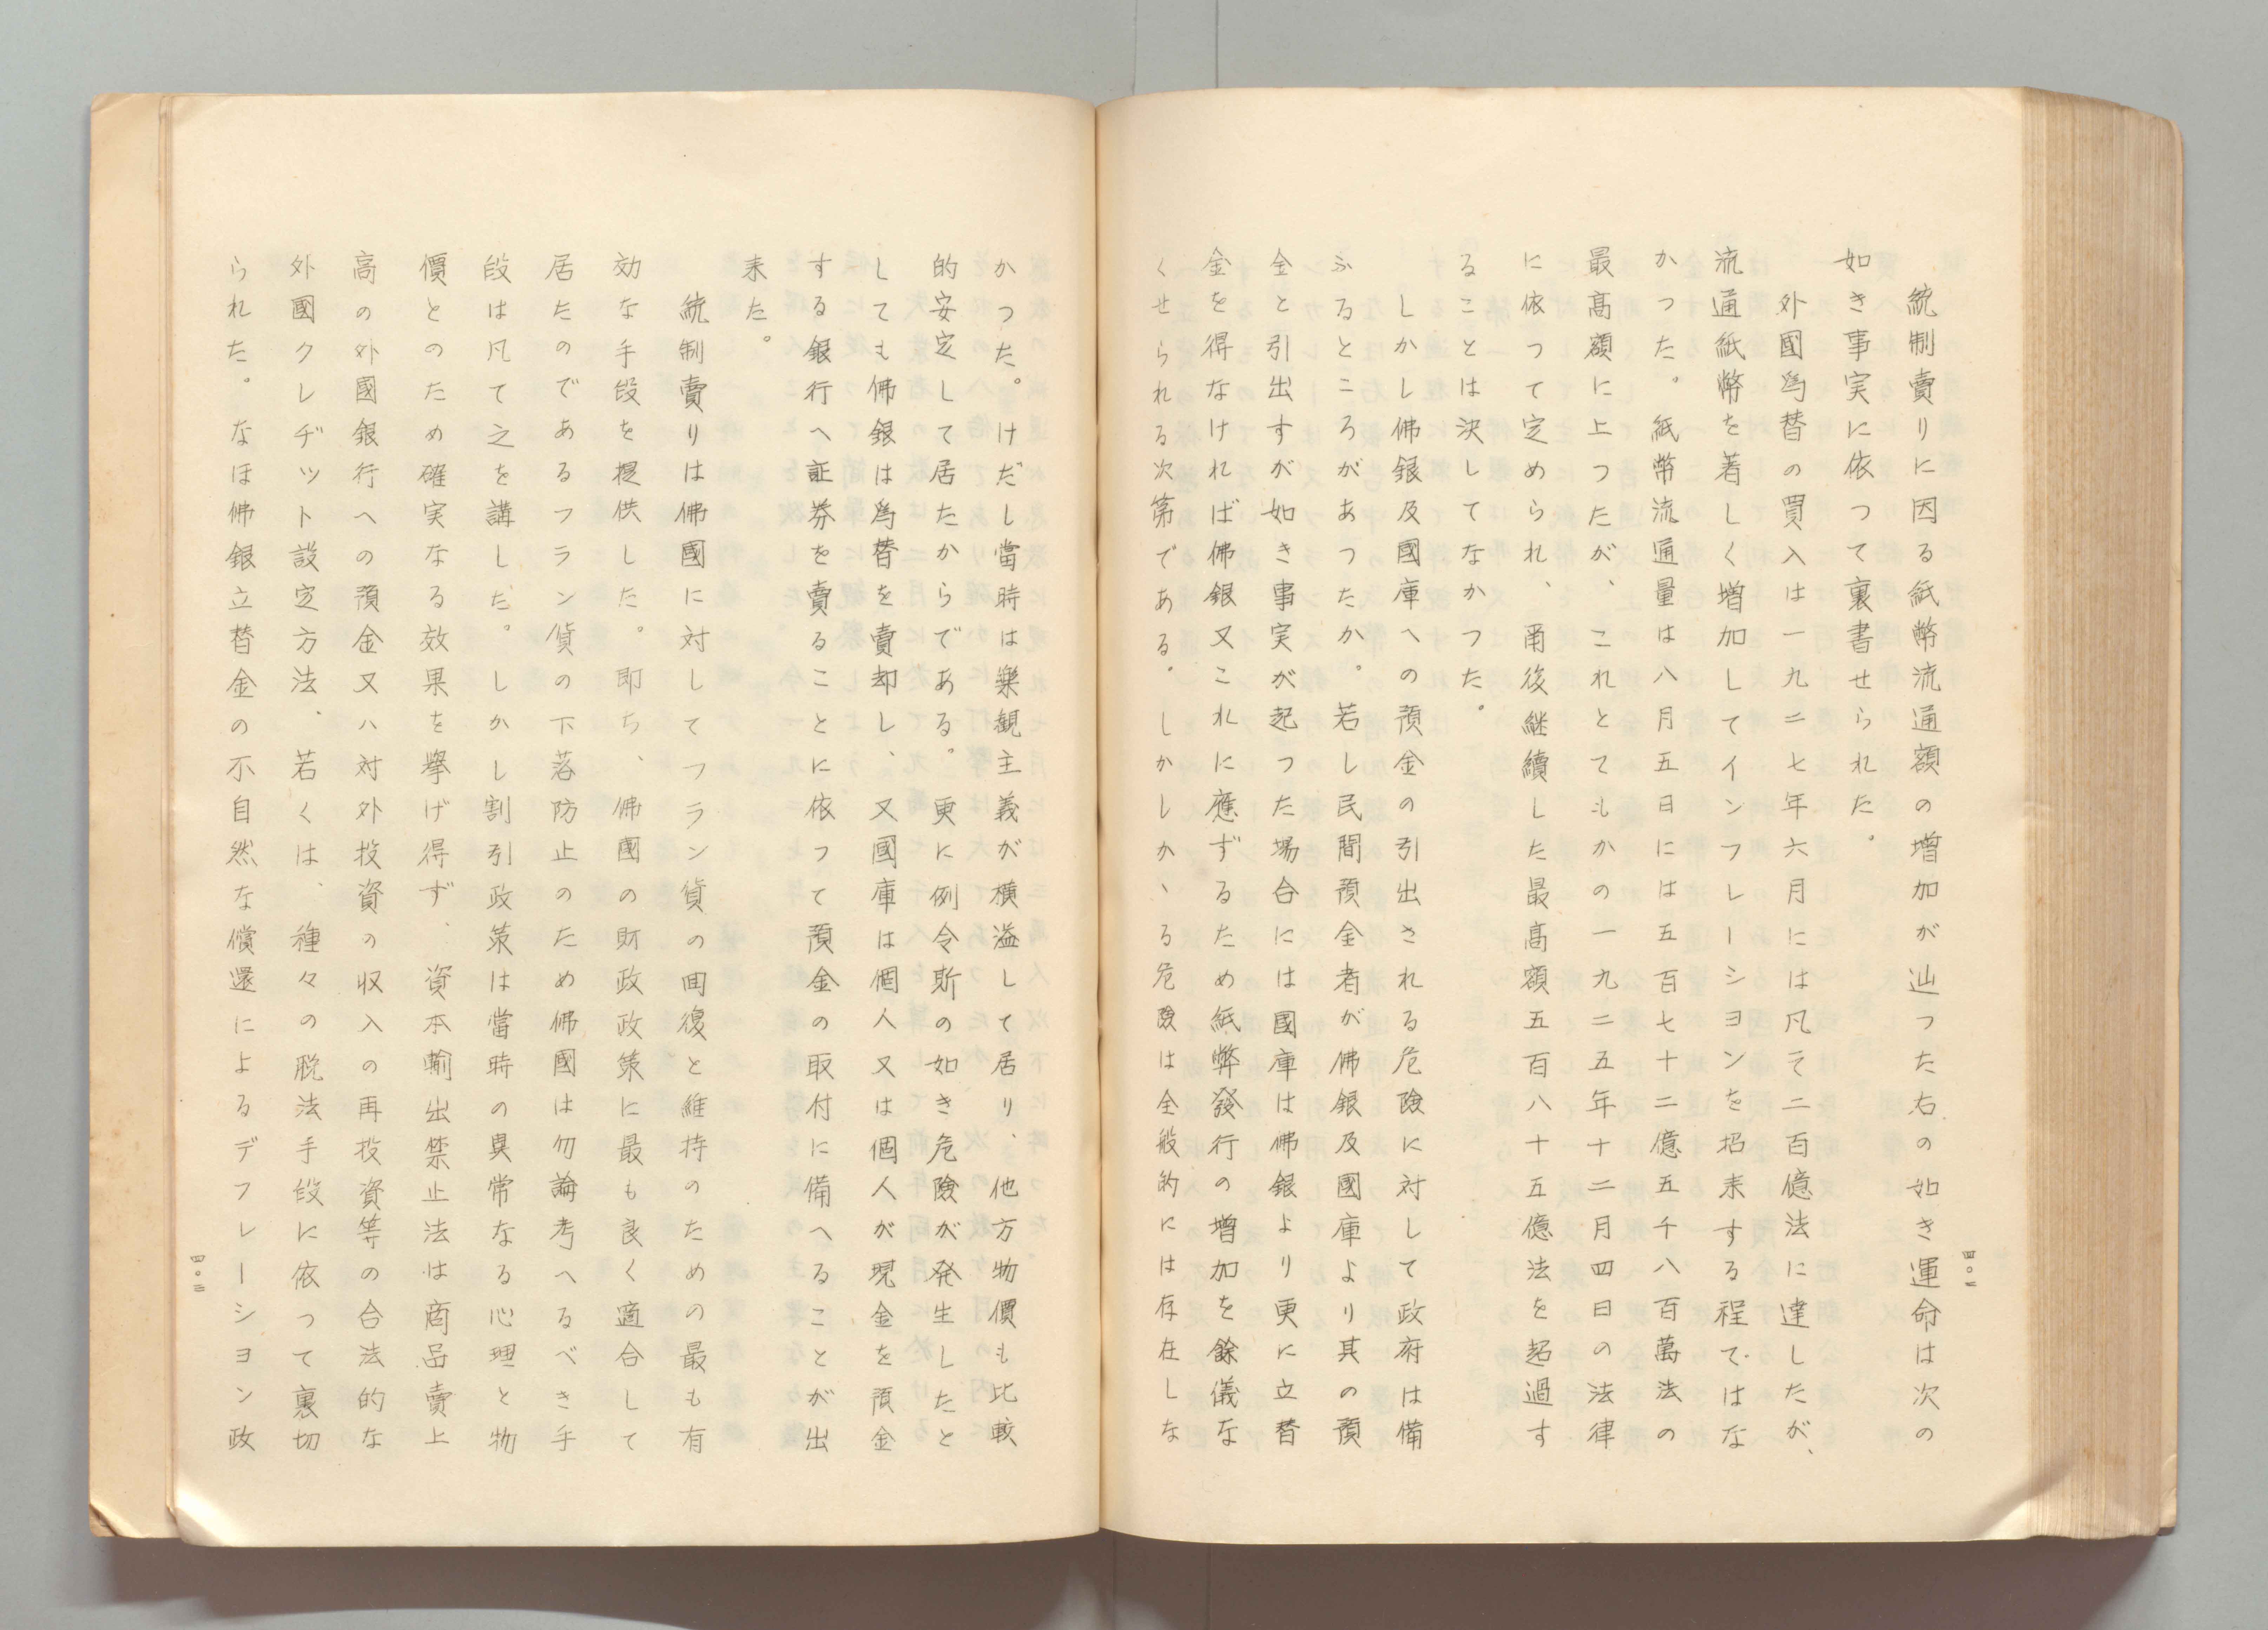 統制賣りに因る紙幣流通額の増加が辿つた右の如き運命は次の
如き事実に依つて裏書せられた。
外國爲替の買入は一九二七年六月には凡そ二百億法に達したが、
流通紙幣を著しく増加してインフレーシヨンを招来する程ではな
かつた。紙幣流通量は八月五日には五百七十二億五千八百萬法の
最高額に上つたが、これとてもかの一九二五年十二月四日の法律
に依つて定められ、爾後継續した最高額五百八十五億法を超過す
ることは決してなかつた。
しかし佛銀及國庫への預金の引出される危険に対して政府は備
ふるところがあつたか。若し民間預金者が佛銀及國庫より其の預
金と引出すが如き事実が起つた場合には國庫は佛銀より更に立替
金を得なければ佛銀又これに應ずるため紙弊發行の増加を餘儀な
くせられる次第である。しかしかゝる危険は全般的には存在しな
四〇一
かつた。けだし當時は樂観主義が横溢して居り、他方物價も比較
的安定して居たからである。更に例令斯の如き危険が発生したと
しても佛銀は爲替を賣却し、又國庫は個人又は個人が現金を預金
する銀行へ証券を賣ることに依つて預金の取付に備へることが出
来た。
統制賣りは佛國に対してフラン貨の囬復と維持のための最も有
効な手段を提供した。即ち、佛國の財政政策に最も良く適合して
居たのであるフラン貨の下落防止のため佛國は勿論考へるべき手
段は凡て之を講した。しかし割引政策は當時の異常なる心理と物
價とのため確実なる效果を擧げ得ず、資本輸出禁止法は商品賣上
高の外國銀行への預金又ハ対外投資の収入の再投資等の合法的な
外國クレヂツト設定方法、若くは、種々の脱法手段に依つて裏切
られた。なほ佛銀立替金の不自然な償還によるデフレーシヨン政
四〇二